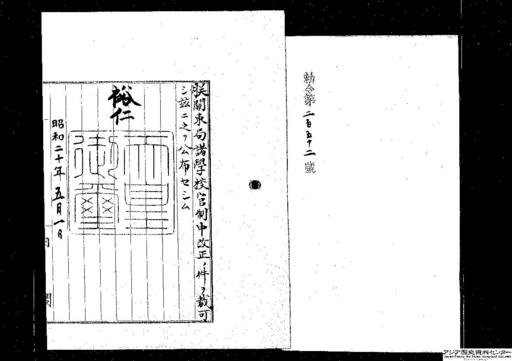 勅令第二百五十二號
朕關東局諸學校官制中改正ノ件ヲ裁可
シ茲ニ之ヲ公布セシム
裕仁
天皇
御璽
昭和二十年五月一日
アジア歴史資料センター